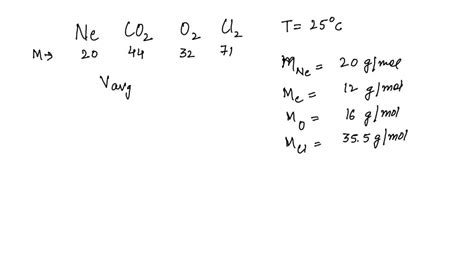 Ne CO₂ O₂ Cl₂
M→ 20 44 32 71
Vavg
T= 25°C
M_Ne = 20 g/mol
M_C = 12 g/mol
M_O = 16 g/mol
M_Cl = 35.5 g/mol